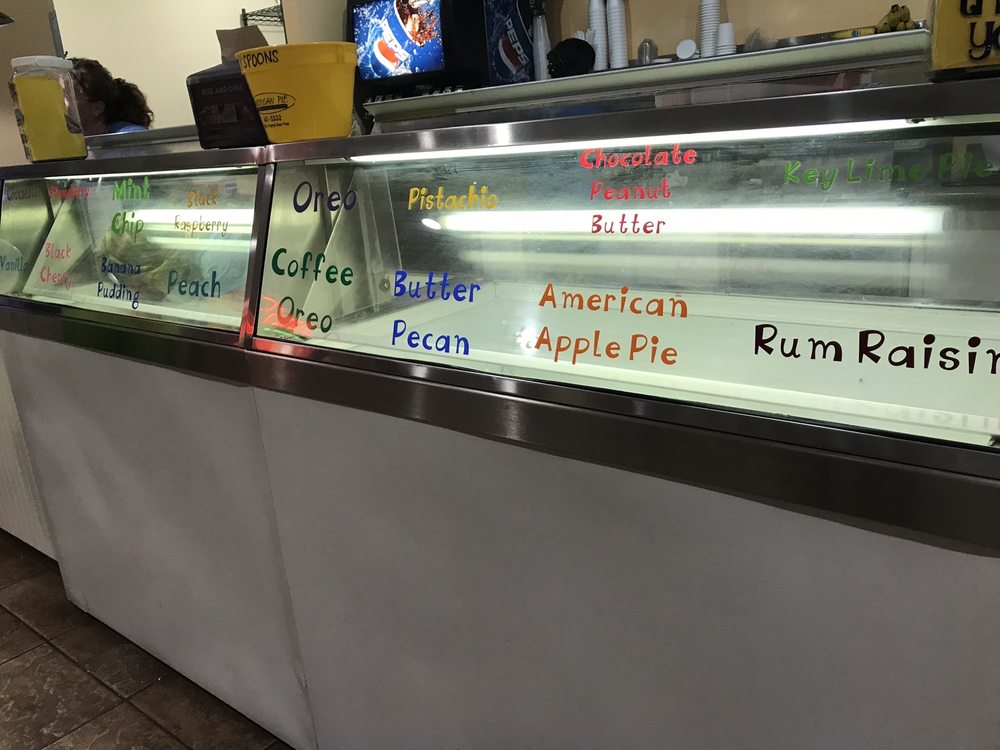 SPOONS
PEPSI
PEPSI
Chocolate
Strawberry
Mint
Chip
Black
Raspberry
Vanilla
Black
Cherry
Banana
Pudding
Peach
Oreo
Pistachio
Chocolate
Peanut
Butter
Key Lime Pie
Coffee
Oreo
Butter
Pecan
American
Apple Pie
Rum Raisin